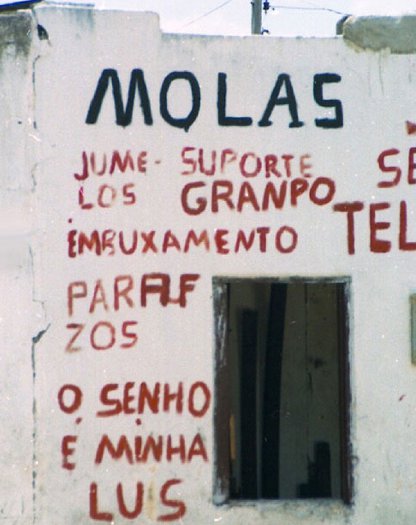 MOLAS
JUME- SUPORTE
LOS GRANPO
EMBUXAMENTO
PARAF
ZOS
O SENHO
E MINHA
LUS
SE
TEL